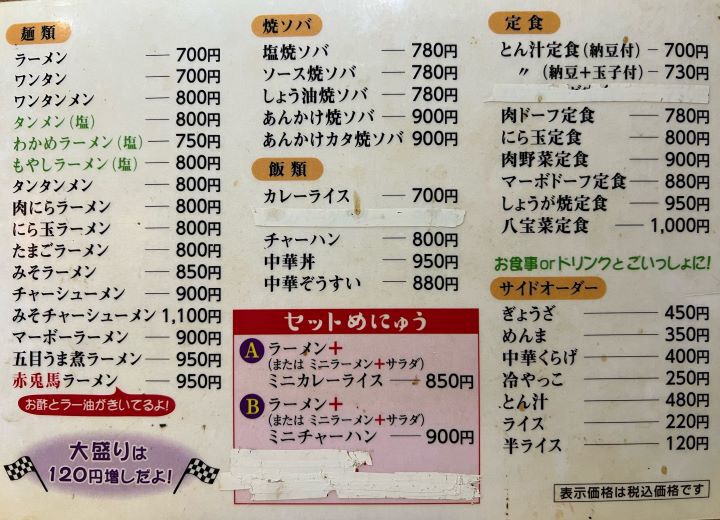 麺類
ラーメン — 700円
ワンタン — 700円
ワンタンメン — 800円
タンメン(塩) — 800円
わかめラーメン(塩) — 750円
もやしラーメン(塩) — 800円
タンタンメン — 800円
肉にらラーメン — 800円
にら玉ラーメン — 800円
たまごラーメン — 800円
みそラーメン — 850円
チャーシューメン — 900円
みそチャーシューメン 1,100円
マーボーラーメン — 900円
五目うま煮ラーメン — 950円
赤兎馬ラーメン — 950円
お酢とラー油がきいてるよ!
大盛りは
120円増しだよ!
焼ソバ
塩焼ソバ — 780円
ソース焼ソバ — 780円
しょう油焼ソバ — 780円
あんかけ焼ソバ — 900円
あんかけカタ焼ソバ 900円
飯類
カレーライス — 700円
チャーハン — 800円
中華丼 — 950円
中華ぞうすい — 880円
セットめにゅう
A ラーメン+
(または ミニラーメン+サラダ)
ミニカレーライス — 850円
B ラーメン+
(または ミニラーメン+サラダ)
ミニチャーハン — 900円
定食
とん汁定食(納豆付) — 700円
〃 (納豆+玉子付) — 730円
肉ドーフ定食 — 780円
にら玉定食 — 800円
肉野菜定食 — 900円
マーボドーフ定食 — 880円
しょうが焼定食 — 950円
八宝菜定食 — 1,000円
お食事orドリンクとごいっしょに!
サイドオーダー
ぎょうざ — 450円
めんま — 350円
中華くらげ — 400円
冷やっこ — 250円
とん汁 — 480円
ライス — 220円
半ライス — 120円
表示価格は税込価格です